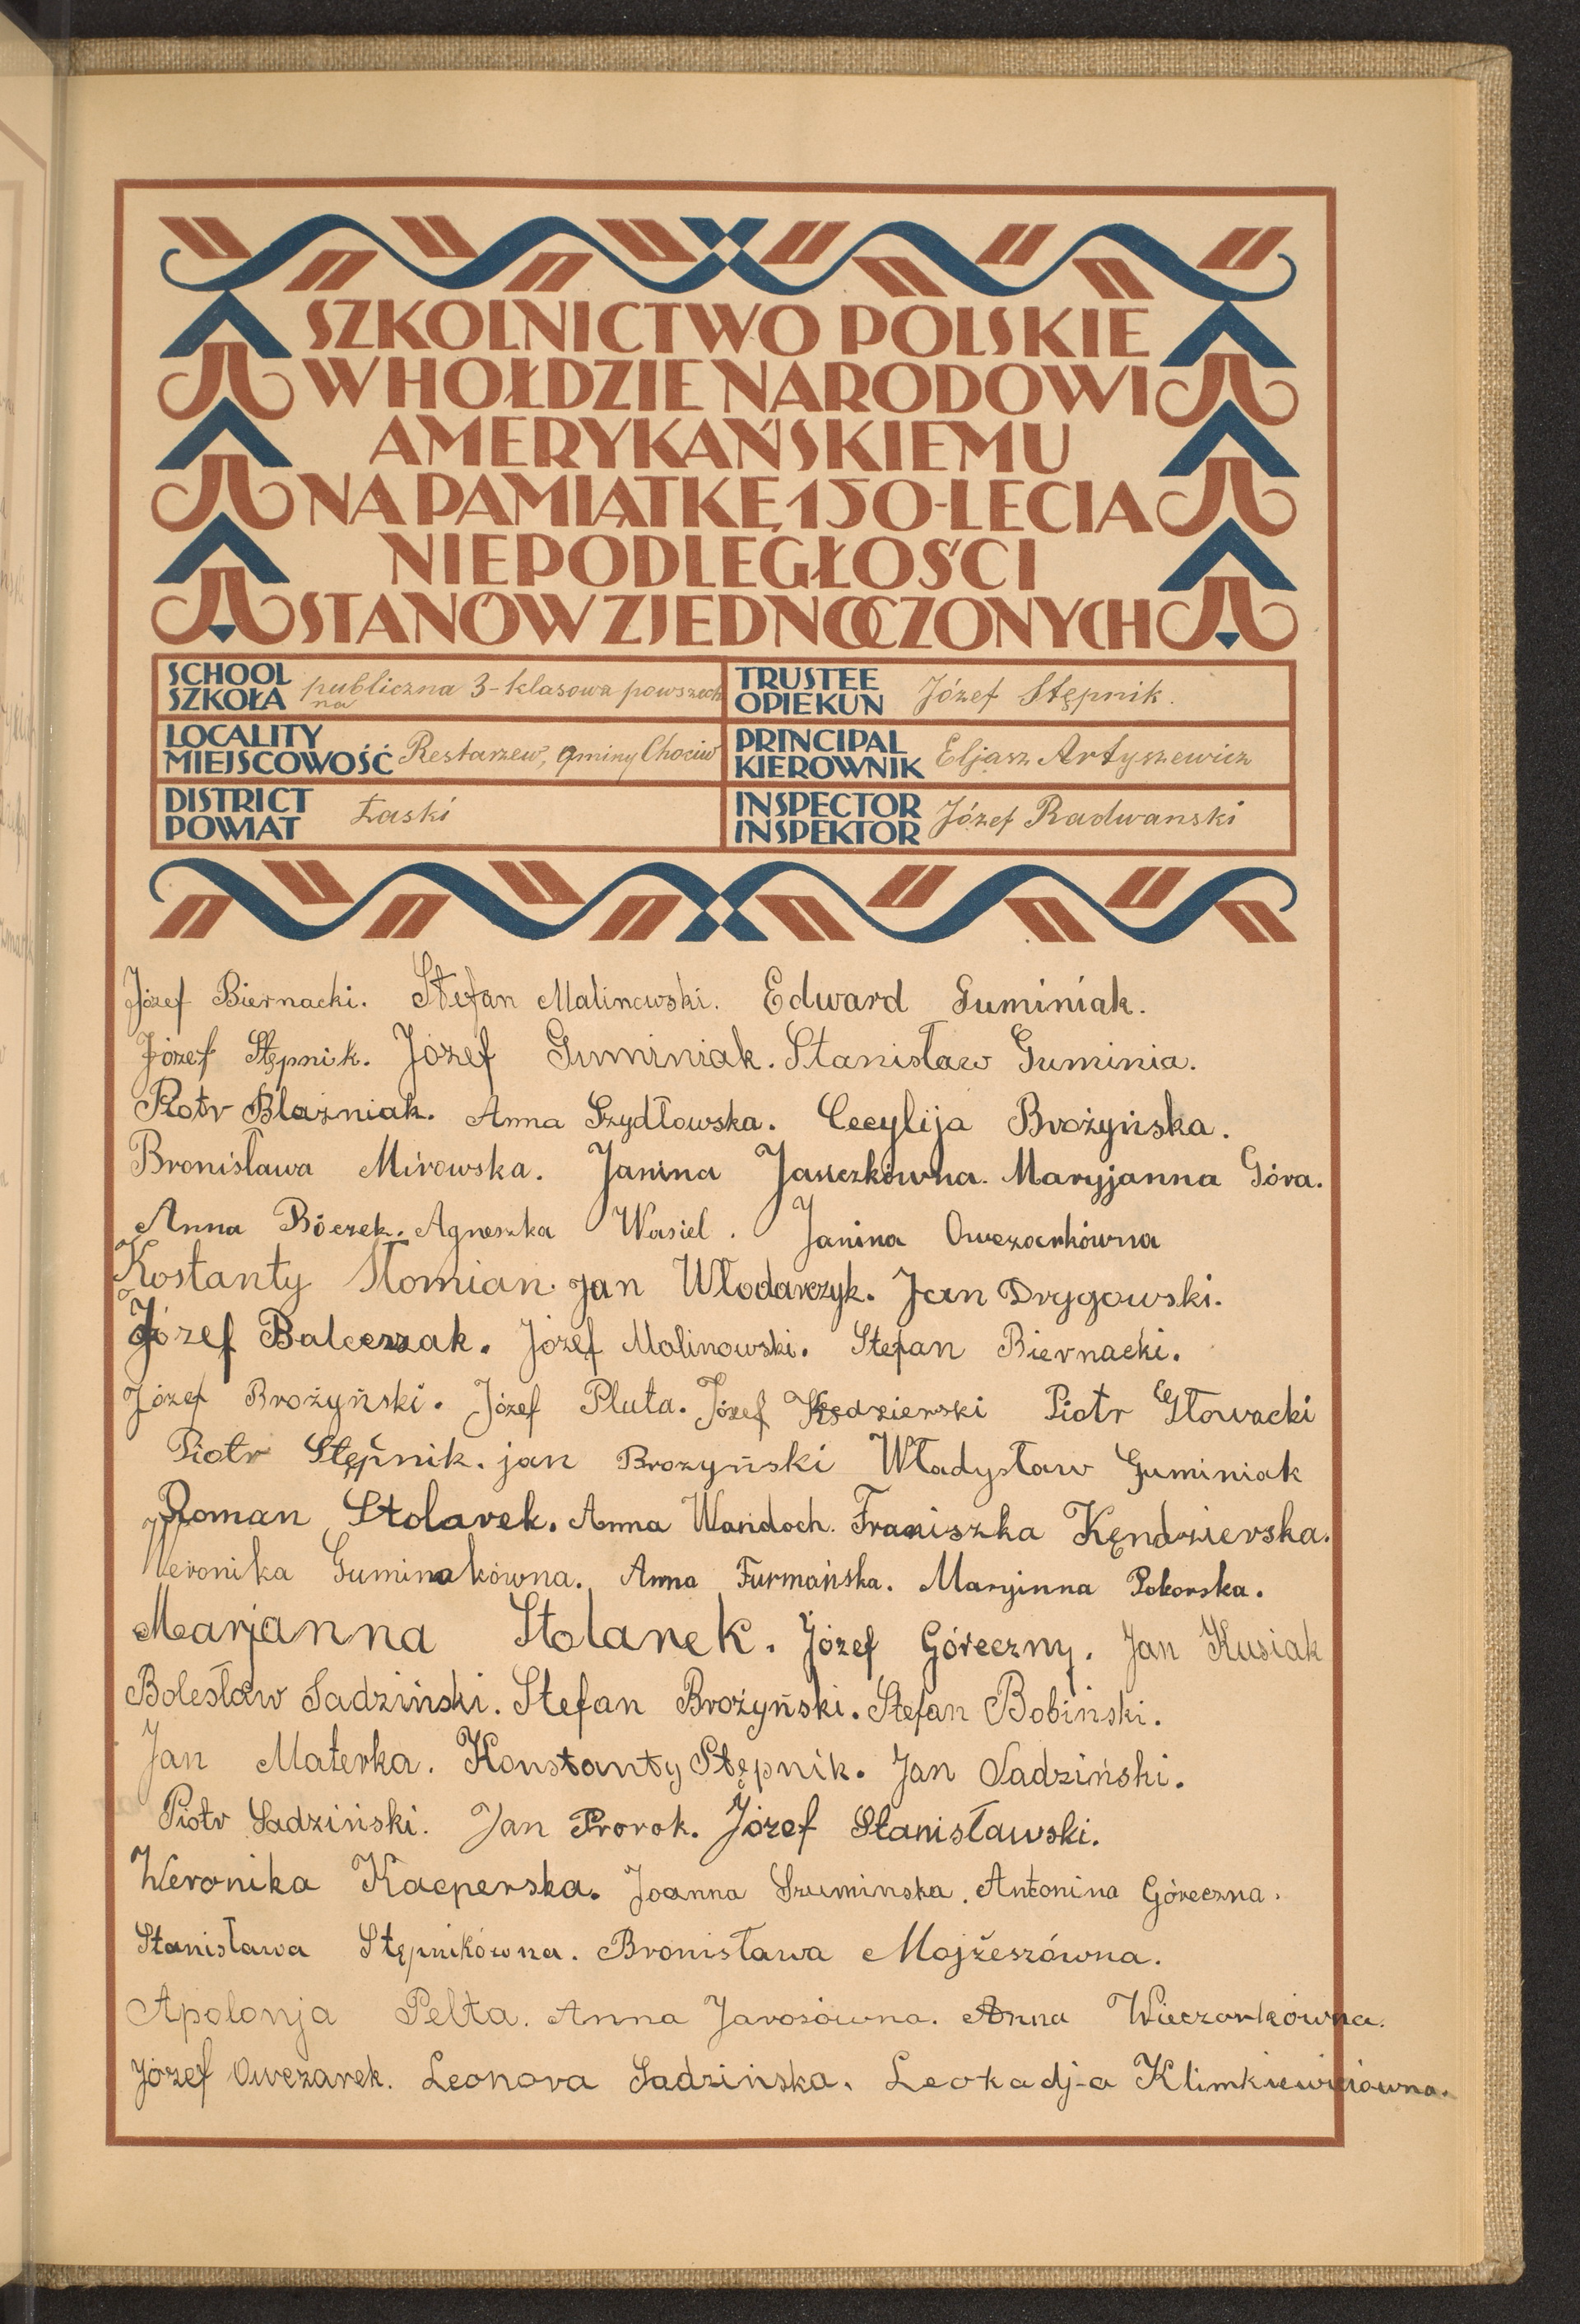 SZKOLNICTWO POLSKIE
W HOŁDZIE NARODOWI
AMERYKAŃSKIEMU
NA PAMIĄTKĘ 150-LECIA
NIEPODLEGŁOŚCI
STANÓW ZJEDNOCZONYCH
SCHOOL
SZKOŁA publiczna 3-klasowa powszech
na
TRUSTEE
OPIEKUN Józef Stępnik.
LOCALITY
MIEJSCOWOŚĆ Restarzew, gminy Chociw
PRINCIPAL
KIEROWNIK Eljasz Artyszewicz
DISTRICT
POWIAT Łaski
INSPECTOR
INSPEKTOR Józef Radwanski
Józef Biernacki. Stefan Malinowski. Edward Guminiak.
Józef Stępnik. Józef Guminiak. Stanisław Guminia.
Piotr Błaźniak. Anna Szydłowska. Cecylija Brożyńska.
Bronisława Mirowska. Janina Janczkówna. Maryjanna Góra.
Anna Bóczek. Agneszka Wasiel. Janina Owczarkówna
Kostanty Słomian. Jan Włodarczyk. Jan Drygowski.
Józef Balcerzak. Józef Malinowski. Stefan Biernacki.
Józef Brożyński. Józef Pluta. Józef Kędzierski Piotr Głowacki
Piotr Stępnik. jan Brozyński Władysław Guminiak
Roman Stolarek. Anna Wandoch. Franciszka Kęndzierska.
Weronika Guminakówna. Anna Furmańska. Maryinna Pokorska.
Marjanna Stolarek. Józef Góreczny. Jan Kusiak
Bolesław Sadziński. Stefan Brożyński. Stefan Bobiński.
Jan Materka. Konstanty Stępnik. Jan Sadziński.
Piotr Sadziński. Jan Prorok. Józef Stanisławski.
Weronika Kacperska. Joanna Szuminska. Antonina Góreczna.
Stanisława Stępnikówna. Bronisława Mojżeszówna.
Apolonja Pelta. Anna Jarosówna. Anna Wieczorkówna.
Józef Owczarek. Leonora Sadzińska. Leokadja Klimkiewiczówna.